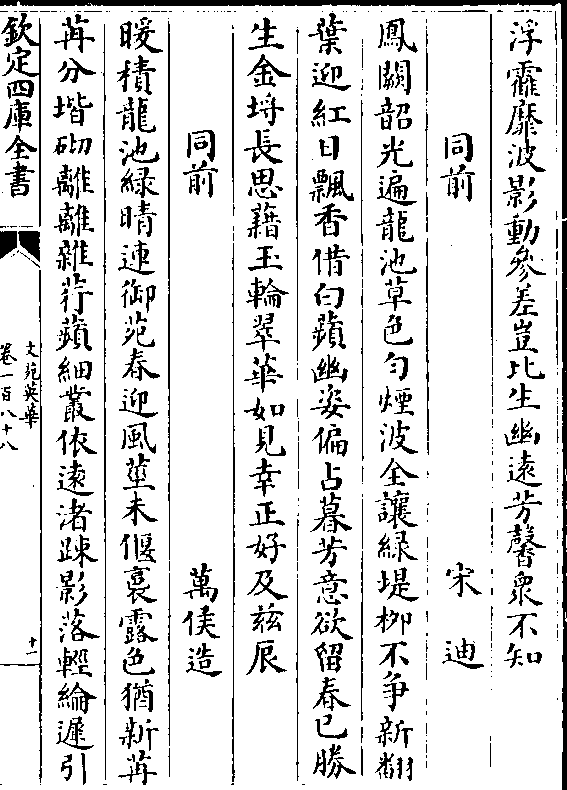 浮靃靡波影動參差豈比生幽遠芳馨衆不知
同前 宋迪
鳳闕韶光遍龍池草色勻煙波全讓緑堤栁不争新翻
葉迎紅日飄香借白蘋幽姿偏占暮芳意欲留春已勝
生金埒長思藉玉輪翠華如見幸正好及兹辰
同前 萬俟造
暖積龍池緑晴連御苑春迎風莖未偃裛露色猶新苒
苒分堦砌離離雜荇蘋細叢依逺渚踈影落輕綸遲引
欽定四庫全書
文苑英華
卷一百八十八
十一